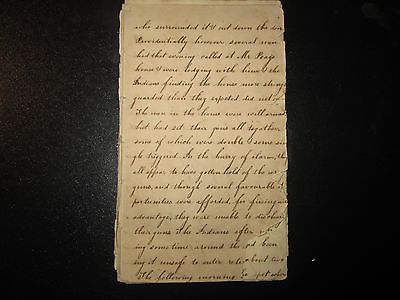 who surrounded it & cut down the doo
Providentially however several arm
had that evening called at Mr Pea's
house & were lodging with him & the
Indians finding the house more strong
guarded than they expected did not
The men in the house were well armed
but had set their guns all together
some of which were double & some sin
gle triggered. In the hurry of alarm, the
all appear to have gotten hold of the
guns, and though several favourable op
portunities were afforded, for firing
advantage, they were unable to discharge
their guns. The Indians after
ing sometime around the and
ing it unsafe to enter
The following morning spot where